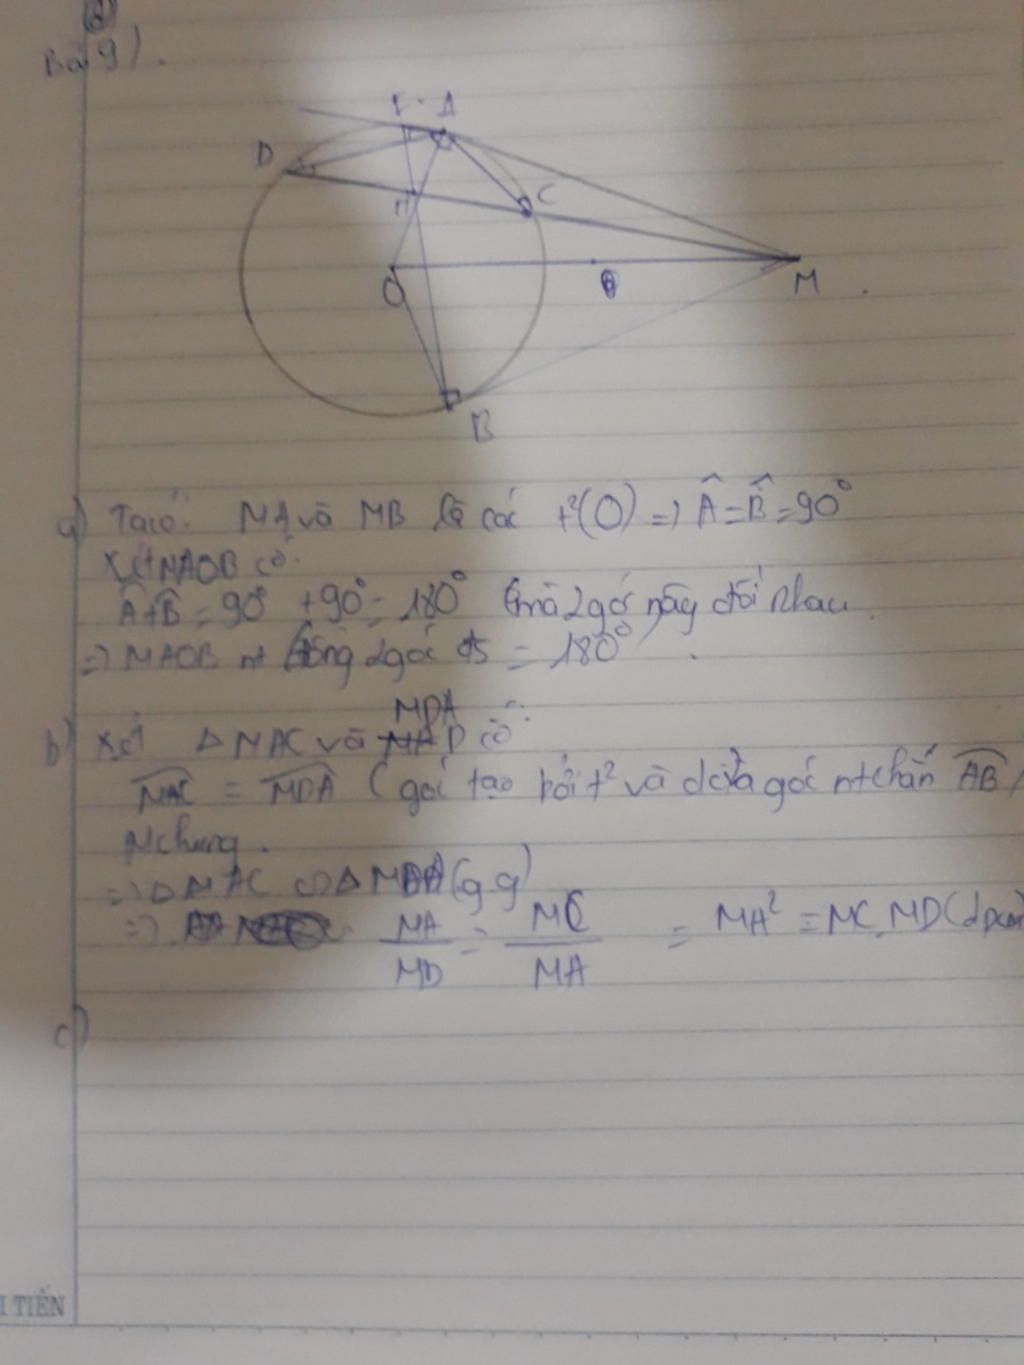 Bài 9).
I A
D
C
H
O
M
B
a) Ta có: MA và MB là các t²(O) => Â = B̂ = 90°
Xét MAOB có:
Â + B̂ = 90° + 90° = 180° (mà 2 góc này đối nhau
=> MAOB nt tổng 2 góc đ = 180°)
MDA
b) Xét △MAC và D có:
MAC = MDA (góc tạo bởi t² và dc và góc nt chắn AB)
M chung.
=> △MAC ∽ △MDA (g.g)
=> MA/MD = MC/MA = MA² = MC.MD (đpcm)
c)
I TIẾN